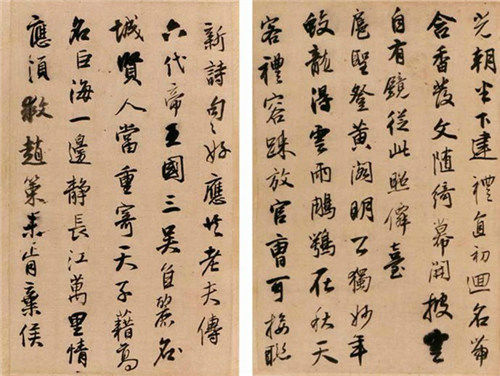 朝坐下建禮直初迴名
含香發文隨綺幕開披雲
自有鏡從此照僊臺
扈聖登黃閣明公獨妙年
蛟龍得雲雨鵰鶚在秋天
客禮容踈放官曹可接聯
新詩句々好應共老夫傳
六代帝王國三吳佳麗名
城賢人當重寄天子藉高
名巨海一邊靜長江萬里情
應須救趙策未肯棄侯